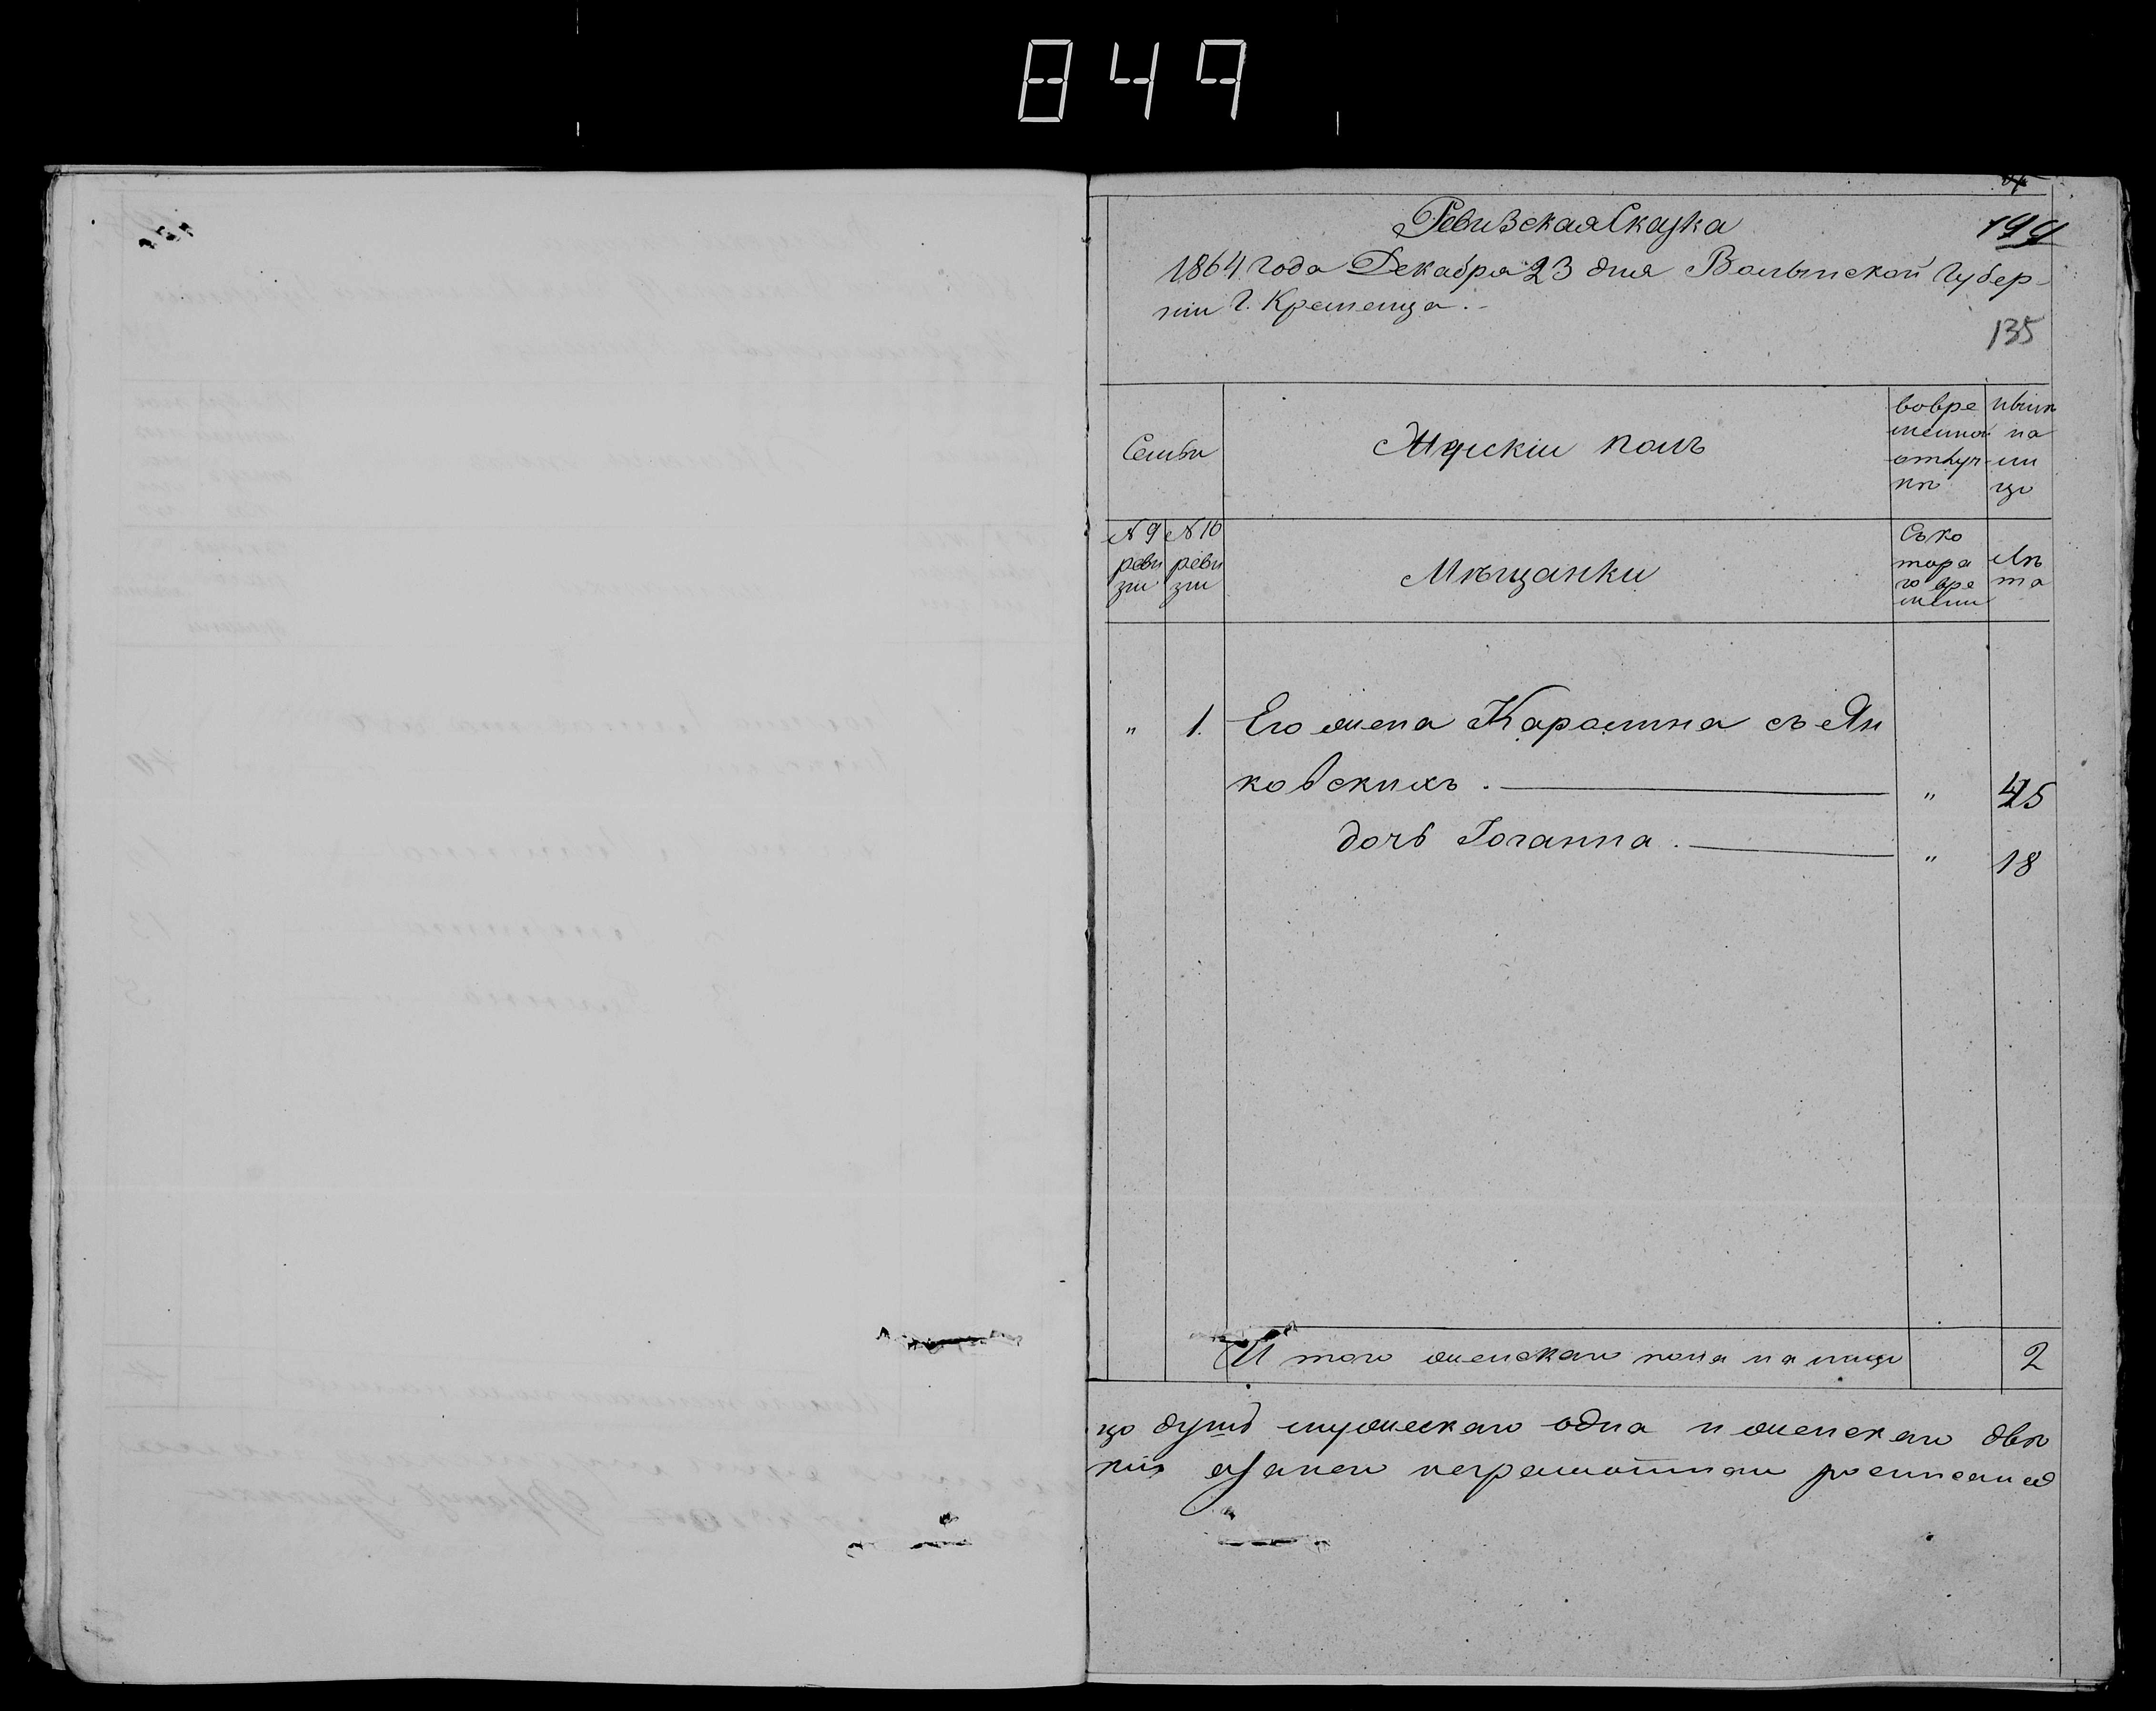 849
Ревизская Сказка
199
1864 года Декабря 23 дня Волынской Губер-
ніи г. Кременца.
135
Семьи
Женскій полъ
во вре
менной
отлуч-
кѣ
нынѣ
на
ли
цо
№ 9
реви
зіи
№ 10
реви
зіи
Мѣщанки
Съ ко
тора
го вре
мени
Лѣ
та
" 1. Его жена Каролина съ Ян
ковскихъ. " 45
дочь Іоганна. " 18
Итого женскаго пола на лицо 2
цо душъ мужескаго одна и женскаго двѣ
неграмотнаго росписался